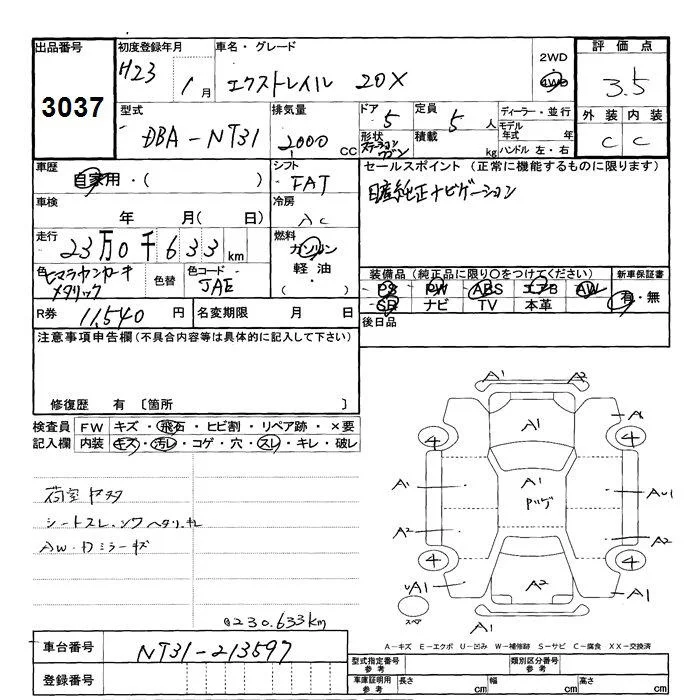 出品番号 初度登録年月 車名・グレード 2WD 評価点
3037 H23 1月 エクストレイル 20X 4WD 3.5
型式 排気量 ドア 定員 ディーラー・並行 外装 内装
DBA-NT31 2000CC 5 5人 モデル年式 年 C C
形状 ステーションワゴン 積載 kg ハンドル 左・右
車歴 シフト セールスポイント(正常に機能するものに限ります)
自家用・( ) FAT 日産純正ナビゲーション
車検 冷房
年 月( 日) AC
走行 燃料
23万0千633km ガソリン
色 色替 色コード 軽油・ 装備品(純正品に限り○をつけてください) 新車保証書
メタリック JAE ( ) PS PW ABS エアB AW 有・無
SR ナビ TV 本革
R券 11,540円 名変期限 月 日 後日品
注意事項申告欄(不具合内容等は具体的に記入して下さい)
修復歴 有 〔箇所 〕
検査員 FW キズ・飛石・ヒビ割・リペア跡・×要
記入欄 内装 キズ・汚レ・コゲ・穴・スレ・キレ・破レ
A1 A2
A1
4 4
A1 A1
A2 A2
4 4
A2 A1
A1
荷室
シートスレ
AW・ドミラーキズ
@230.633km
車台番号 NT31-213597
登録番号
A-キズ E-エクボ U-凹み W-補修跡 S-サビ C-腐食 XX-交換済
型式指定番号 参考 類別区分番号 参考
車庫証明用 参考 長さ cm 幅 cm 高さ cm